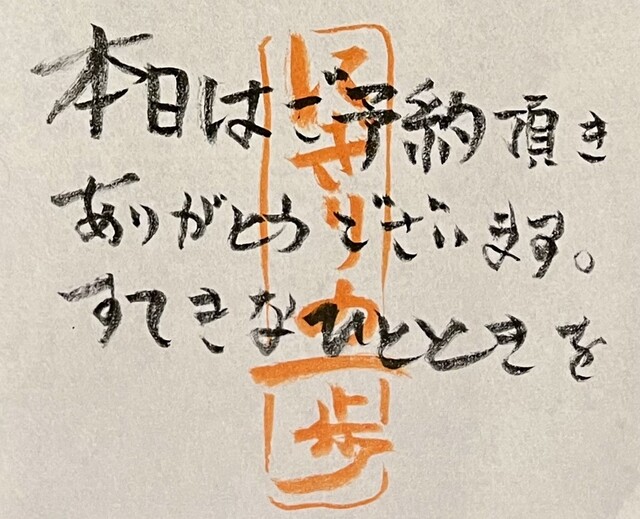 本日はご予約頂き
ありがとうございます。
すてきなひとときを
にぎりの一歩